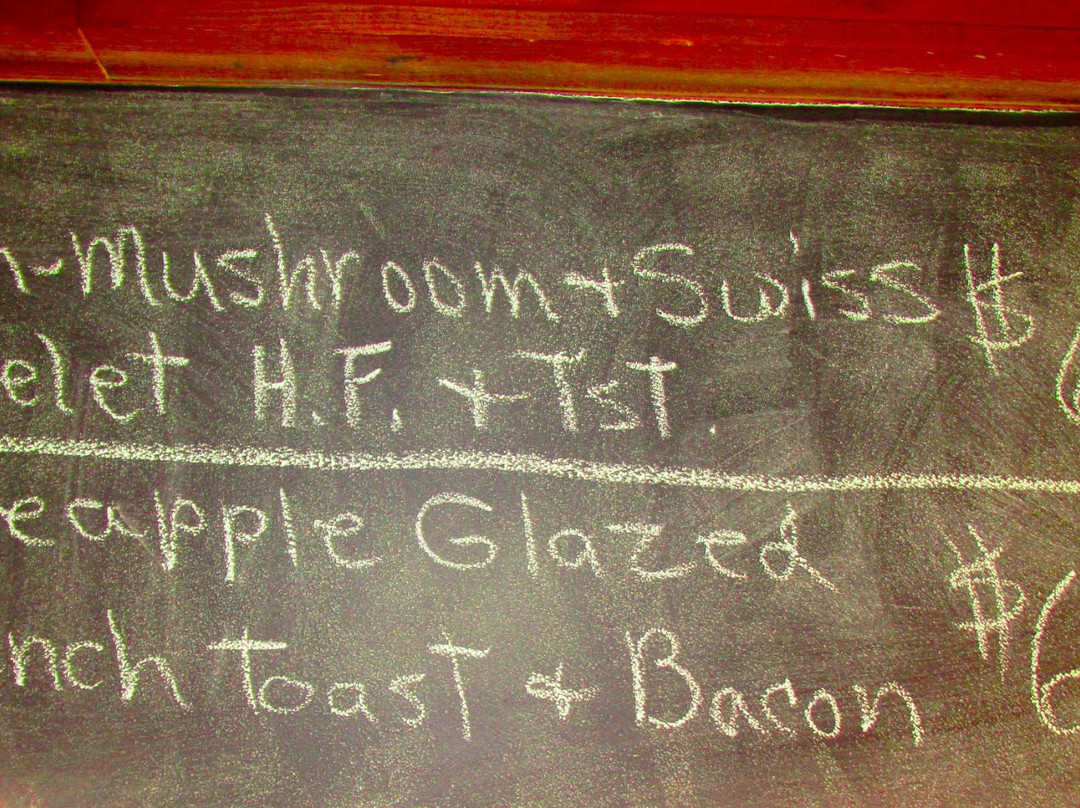 n-Mushroom + Swiss $
elet H.F. + TsT.
eapple Glazed $6
nch toasT & Bacon